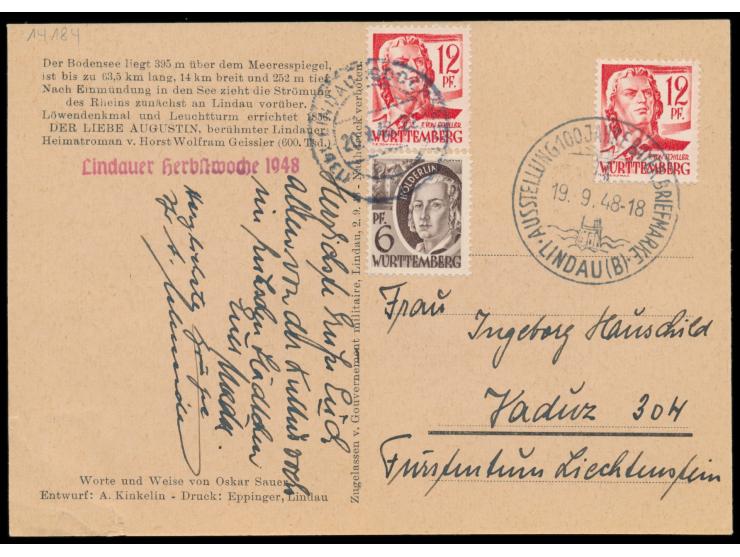 14184
Der Bodensee liegt 395 m über dem Meeresspiegel,
ist bis zu 63,5 km lang, 14 km breit und 252 m tief.
Nach Einmündung in den See zieht die Strömung
des Rheins zunächst an Lindau vorüber.
Löwendenkmal und Leuchtturm errichtet 1856.
DER LIEBE AUGUSTIN, berühmter Lindauer
Heimatroman v. Horst Wolfram Geissler (600. Tsd.)
Lindauer Herbstwoche 1948
Herzlichste Grüße Euch
allen von der Kulturwoche
im
Eure
Herzlichste Grüße
Worte und Weise von Oskar Sauer
Entwurf: A. Kinkelin - Druck: Eppinger, Lindau
Zugelassen v. Gouvernement militaire, Lindau, 2. 9. 48 - Nachdruck verboten.
12
PF.
F. VON SCHILLER
WÜRTTEMBERG
HÖLDERLIN
PF.
6
WÜRTTEMBERG
12
PF.
F. VON SCHILLER
WÜRTTEMBERG
LINDAU
AUSSTELLUNG 100 JAHRE BRIEFMARKE
19. 9. 48-18
LINDAU (B)
Frau
Ingeborg Hauschild
Vaduz 304
Fürstentum Liechtenstein